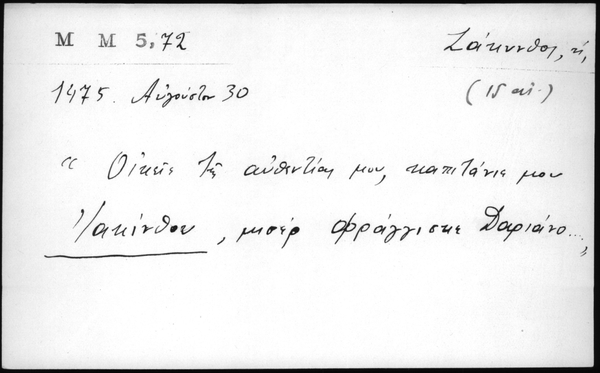 M M 5, 72
Ζάκυνθος, ἡ,
1475. Αὐγούστου 30
(15 αἰ.)
“ Οἰκεῖε τῆς αὐθεντίας μου, καπιτάνιε μου
Ζακίνθου, μισέρ Φράγγισκε Δαριάνο...,